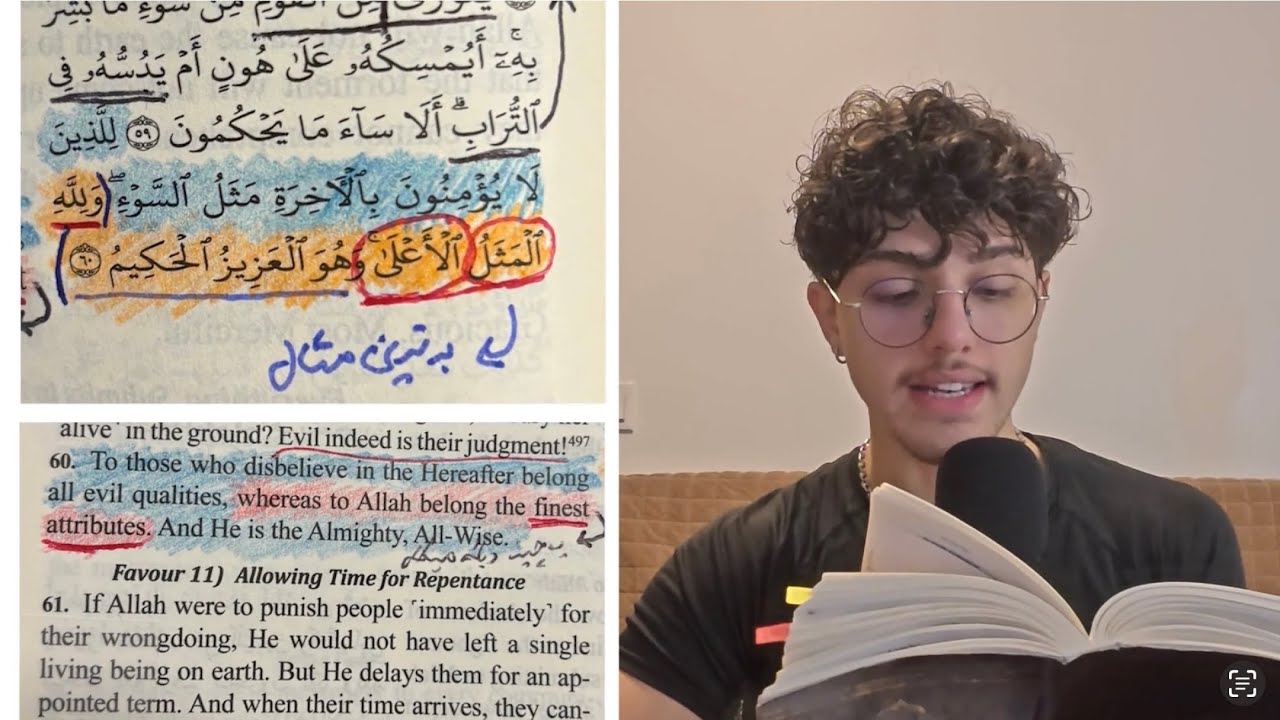 يَتَوَٰرَىٰ مِنَ ٱلْقَوْمِ مِن سُوٓءِ مَا بُشِّرَ
بِهِۦٓ ۚ أَيُمْسِكُهُۥ عَلَىٰ هُونٍ أَمْ يَدُسُّهُۥ فِى
ٱلتُّرَابِ ۗ أَلَا سَآءَ مَا يَحْكُمُونَ ٥٩ لِلَّذِينَ
لَا يُؤْمِنُونَ بِٱلْـَٔاخِرَةِ مَثَلُ ٱلسَّوْءِ ۖ وَلِلَّهِ
ٱلْمَثَلُ ٱلْأَعْلَىٰ ۚ وَهُوَ ٱلْعَزِيزُ ٱلْحَكِيمُ ٦٠
مثال
alive˺ in the ground? Evil indeed is their judgment!497
60. To those who disbelieve in the Hereafter belong
all evil qualities, whereas to Allah belong the finest
attributes. And He is the Almighty, All-Wise.
Favour 11) Allowing Time for Repentance
61. If Allah were to punish people ˹immediately˺ for
their wrongdoing, He would not have left a single
living being on earth. But He delays them for an ap-
pointed term. And when their time arrives, they can-